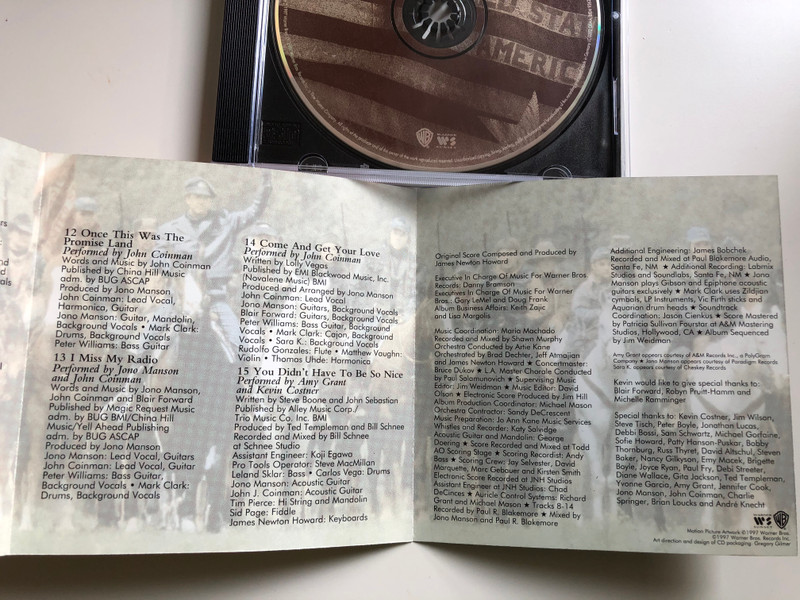 ED STA
AMERIC
12 Once This Was The
Promise Land
Performed by John Coinman
Words and Music by John Coinman
Published by China Hill Music
adm. by BUG ASCAP
Produced by Jono Manson,
John Coinman: Lead Vocal,
Harmonica, Guitar
Jono Manson: Guitar, Mandolin,
Background Vocals • Mark Clark:
Drums, Background Vocals
Peter Williams: Bass Guitar
13 I Miss My Radio
Performed by Jono Manson
and John Coinman
Words and Music by Jono Manson,
John Coinman and Blair Forward
Published by Magic Request Music
adm. by BUG BMI/China Hill
Music/Yell Ahead Publishing
adm. by BUG ASCAP
Produced by Jono Manson
Jono Manson: Lead Vocals, Guitars
John Coinman: Lead Vocal, Guitar
Peter Williams: Bass Guitar,
Background Vocals • Mark Clark:
Drums, Background Vocals
14 Come And Get Your Love
Performed by John Coinman
Written by Lolly Vegas
Published by EMI Blackwood Music, Inc.
(Novalene Music) BMI
Produced and Arranged by Jono Manson
John Coinman: Lead Vocal
Jono Manson: Guitars, Background Vocals
Blair Forward: Guitars, Background Vocals
Peter Williams: Bass Guitar, Background
Vocals • Mark Clark: Cajon, Background
Vocals • Sara K.: Background Vocals
Rudolfo Gonzales: Flute • Matthew Vaughn:
Violin • Thomas Uhde: Harmonica
15 You Didn't Have To Be So Nice
Performed by Amy Grant
and Kevin Costner
Written by Steve Boone and John Sebastian
Published by Alley Music Corp./
Trio Music Co. Inc. BMI
Produced by Ted Templeman and Bill Schnee
Recorded and Mixed by Bill Schnee
at Schnee Studio
Assistant Engineer: Koji Egawa
Pro Tools Operator: Steve MacMillan
Leland Sklar: Bass • Carlos Vega: Drums
Jono Manson: Acoustic Guitar
John J. Coinman: Acoustic Guitar
Tim Pierce: Hi String and Mandolin
Sid Page: Fiddle
James Newton Howard: Keyboards
Original Score Composed and Produced by
James Newton Howard
Executive In Charge Of Music For Warner Bros
Records: Danny Bramson
Executives In Charge Of Music For Warner
Bros.: Gary LeMel and Doug Frank
Album Business Affairs: Keith Zajic
and Lisa Margolis
Music Coordination: Maria Machado
Recorded and Mixed by Shawn Murphy
Orchestra Conducted by Artie Kane
Orchestrated by Brad Dechter, Jeff Atmajian
and James Newton Howard ★ Concertmaster:
Bruce Dukov ★ L.A. Master Chorale Conducted
by Paul Salamunovich ★ Supervising Music
Editor: Jim Weidman ★ Music Editor: David
Olson ★ Electronic Score Produced by Jim Hill
Album Production Coordinator: Michael Mason
Orchestra Contractor: Sandy DeCrescent
Music Preparation: Jo Ann Kane Music Services
Whistles and Recorder: Katy Salvidge
Acoustic Guitar and Mandolin: George
Doering ★ Score Recorded and Mixed at Todd
AO Scoring Stage ★ Scoring Recordist: Andy
Bass ★ Scoring Crew: Jay Selvester, David
Marquette, Marc Gebauer and Kirsten Smith
Electronic Score Recorded at JNH Studios
Assistant Engineer at JNH Studios: Chad
DeCinces ★ Auricle Control Systems: Richard
Grant and Michael Mason ★ Tracks 8-14
Recorded by Paul R. Blakemore ★ Mixed by
Jono Manson and Paul R. Blakemore
Additional Engineering: James Bobchek
Recorded and Mixed at Paul Blakemore Audio,
Santa Fe, NM ★ Additional Recording: Labmix
Studios and Soundlabs, Santa Fe, NM ★ Jono
Manson plays Gibson and Epiphone acoustic
guitars exclusively ★ Mark Clark uses Zildjian
cymbals, LP Instruments, Vic Firth sticks and
Aquarian drum heads ★ Soundtrack
Coordination: Jason Cienkus ★ Score Mastered
by Patricia Sullivan Fourstar at A&M Mastering
Studios, Hollywood, CA ★ Album Sequenced
by Jim Weidman
Amy Grant appears courtesy of A&M Records Inc., a PolyGram
Company ★ Jono Manson appears courtesy of Paradigm Records
Sara K. appears courtesy of Chesky Records
Kevin would like to give special thanks to:
Blair Forward, Robyn Pruitt-Hamm and
Michelle Ramminger
Special thanks to: Kevin Costner, Jim Wilson,
Steve Tisch, Peter Boyle, Jonathan Lucas,
Debbi Bossi, Sam Schwartz, Michael Gorfaine,
Sofie Howard, Patty Hanson-Puskar, Bobby
Thornburg, Russ Thyret, David Altschul, Steven
Baker, Nancy Gilkyson, Emy Macek, Brigette
Boyle, Joyce Ryan, Paul Fry, Debi Streeter,
Diane Wallace, Gita Jackson, Ted Templeman,
Yvonne Garcia, Amy Grant, Jennifer Cook,
Jono Manson, John Coinman, Charlie
Springer, Brian Loucks and André Knecht
Motion Picture Artwork ©1997 Warner Bros.
©1997 Warner Bros. Records Inc.
Art direction and design of CD packaging: Gregory Gilmer